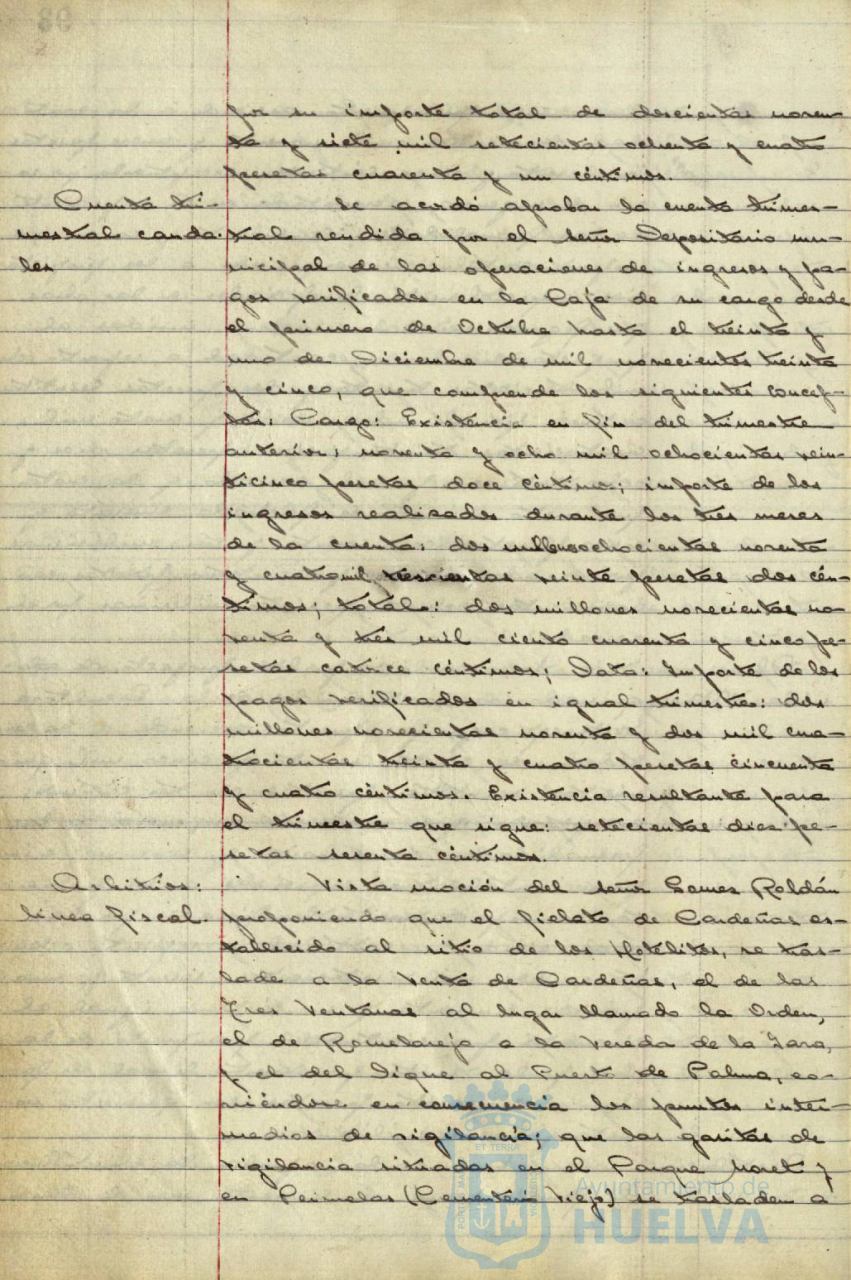 por su importe total de doscientas noven-
ta y siete mil setecientas ochenta y cuatro
pesetas cuarenta y un céntimos.
Cuenta tri-
mestral cauda-
les
Se acordó aprobar la cuenta trimes-
tral rendida por el señor Depositario mu-
nicipal de las operaciones de ingresos y pa-
gos verificados en la Caja de su cargo desde
el primero de Octubre hasta el treinta y
uno de Diciembre de mil novecientos treinta
y cinco, que comprende los siguientes concep-
tos: Cargo: Existencia en fin del trimestre
anterior; noventa y ocho mil ochocientas vein-
ticinco pesetas doce céntimos; importe de los
ingresos realizados durante los tres meses
de la cuenta: dos millones ochocientas noventa
y cuatro mil trescientas veinte pesetas dos cén-
timos; total: dos millones novecientas no-
venta y tres mil ciento cuarenta y cinco pe-
setas catorce céntimos; Data: Importe de los
pagos verificados en igual trimestre: dos
millones novecientas noventa y dos mil cua-
trocientas treinta y cuatro pesetas cincuenta
y cuatro céntimos. Existencia resultante para
el trimestre que sigue: setecientas diez pe-
setas sesenta céntimos.
Arbitrios:
línea fiscal.
Vista moción del señor Gomez Roldán
proponiendo que el fielato de Cardeñas es-
tablecido al sitio de los Hotelitos, se tras-
lade a la Venta de Cardeñas, el de las
Tres Ventanas al lugar llamado la Orden,
el de a la Vereda de la
y el del Dique al Puerto de Palma, co-
rriéndose en consecuencia los puntos inter-
medios de vigilancia; que las garitas de
vigilancia situadas en el Parque Moret y
en (Cementerio Viejo) se trasladen a
Ayuntamiento de
HUELVA